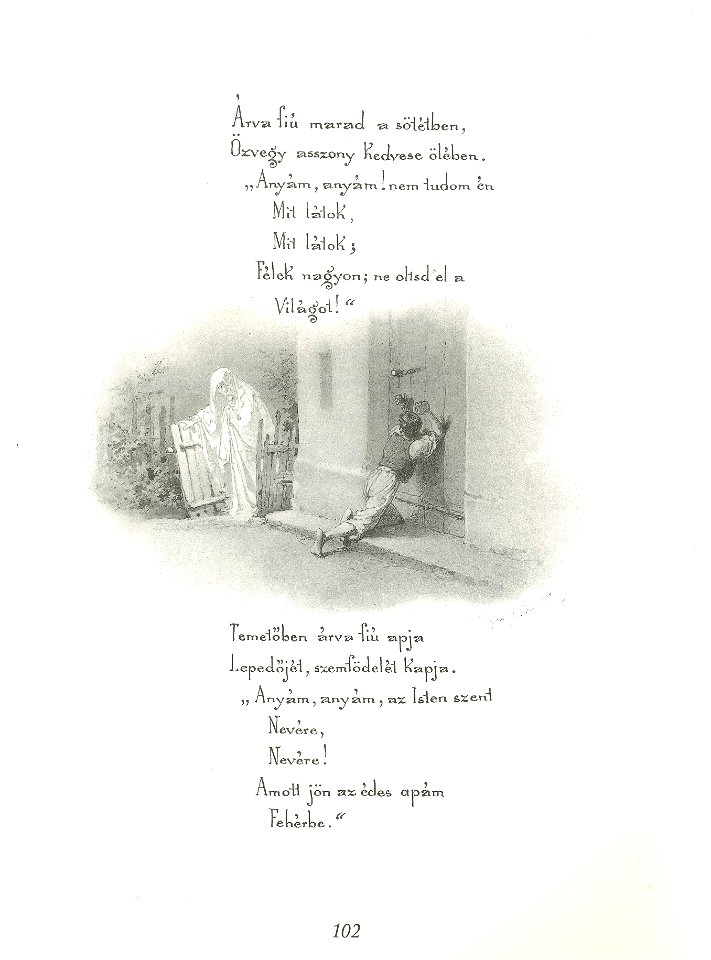 Árva fiú marad a sötétben,
Özvegy asszony kedvese ölében.
„Anyám, anyám! nem tudom én
Mit látok,
Mit látok;
Félek nagyon; ne oltsd el a
Világot!“
Temetőben árva fiú apja
Lepedőjét, szemfödelét kapja.
„Anyám, anyám, az Isten szent
Nevére,
Nevére!
Amott jön az édes apám
Fehérbe.“
102